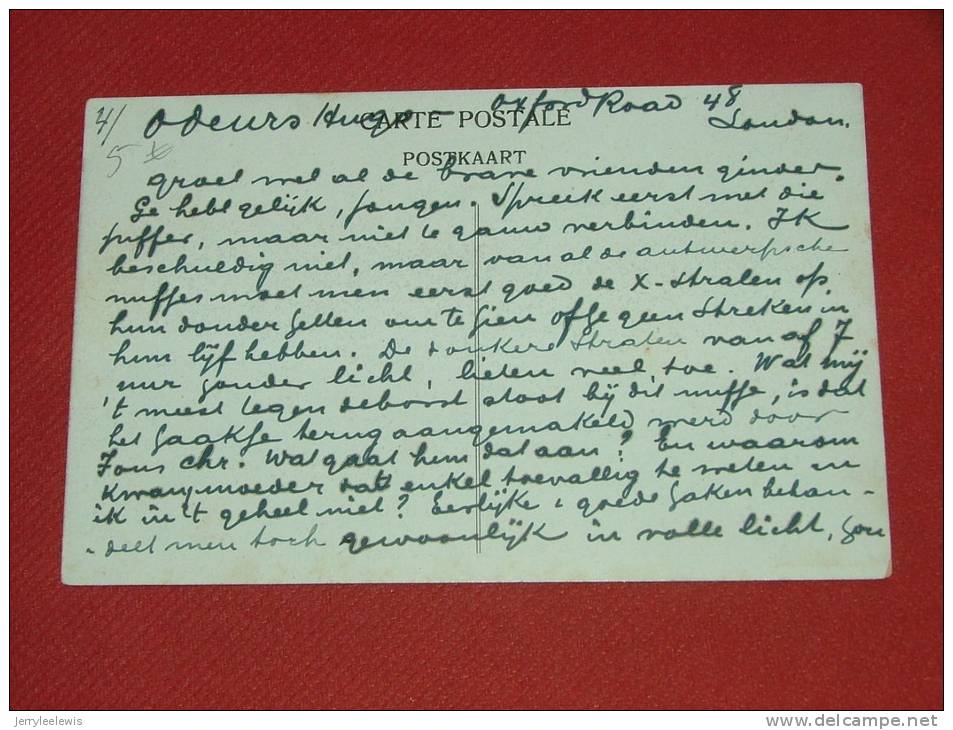 4/ Odeurs Hugo - Oxford Road 48
London.
CARTE POSTALE
5
POSTKAART
groet wel al de brave vrienden ginder.
Ge hebt gelijk, jongen. Spreek eerst met die
juffer, maar niet te gauw verbinden. Ik
beschuldig niet, maar van al de antwerpsche
nuffjes moet men eerst goed de X-stralen op
hun donder zetten om te zien of ze geen streken in
hun lijf hebben. De donkere stralen van af 7
uur zonder licht, lieten veel toe. Wat mij
't meest tegen de borst stoot bij dit nuffje, is dat
het zaakje terug aangemakeld werd door
Fons Chr. Wat gaat hem dat aan? En waarom
kwam moeder dat enkel toevallig te weten en
ik in 't geheel niet? Eerlijke & goede zaken behan-
delt men toch gewoonlijk in volle licht, zou
jerryleelewis
www.delcampe.net